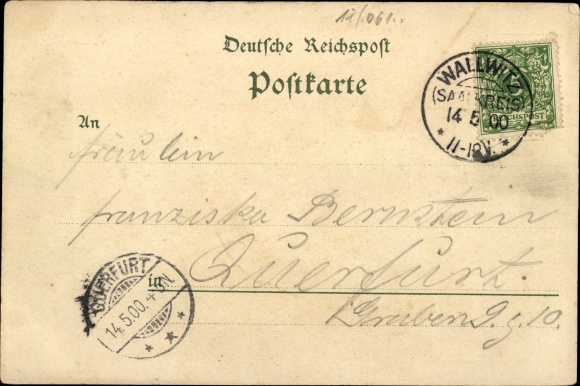 12/061..
Deutsche Reichspost
Postkarte
WALLWITZ
(SAALKREIS)
14 5 00
* 11-12V. *
REICHSPOST
An
Fräulein
Franziska Bernstein
in Querfurt
QUERFURT
14.5.00.4-5N
* * *
Graben